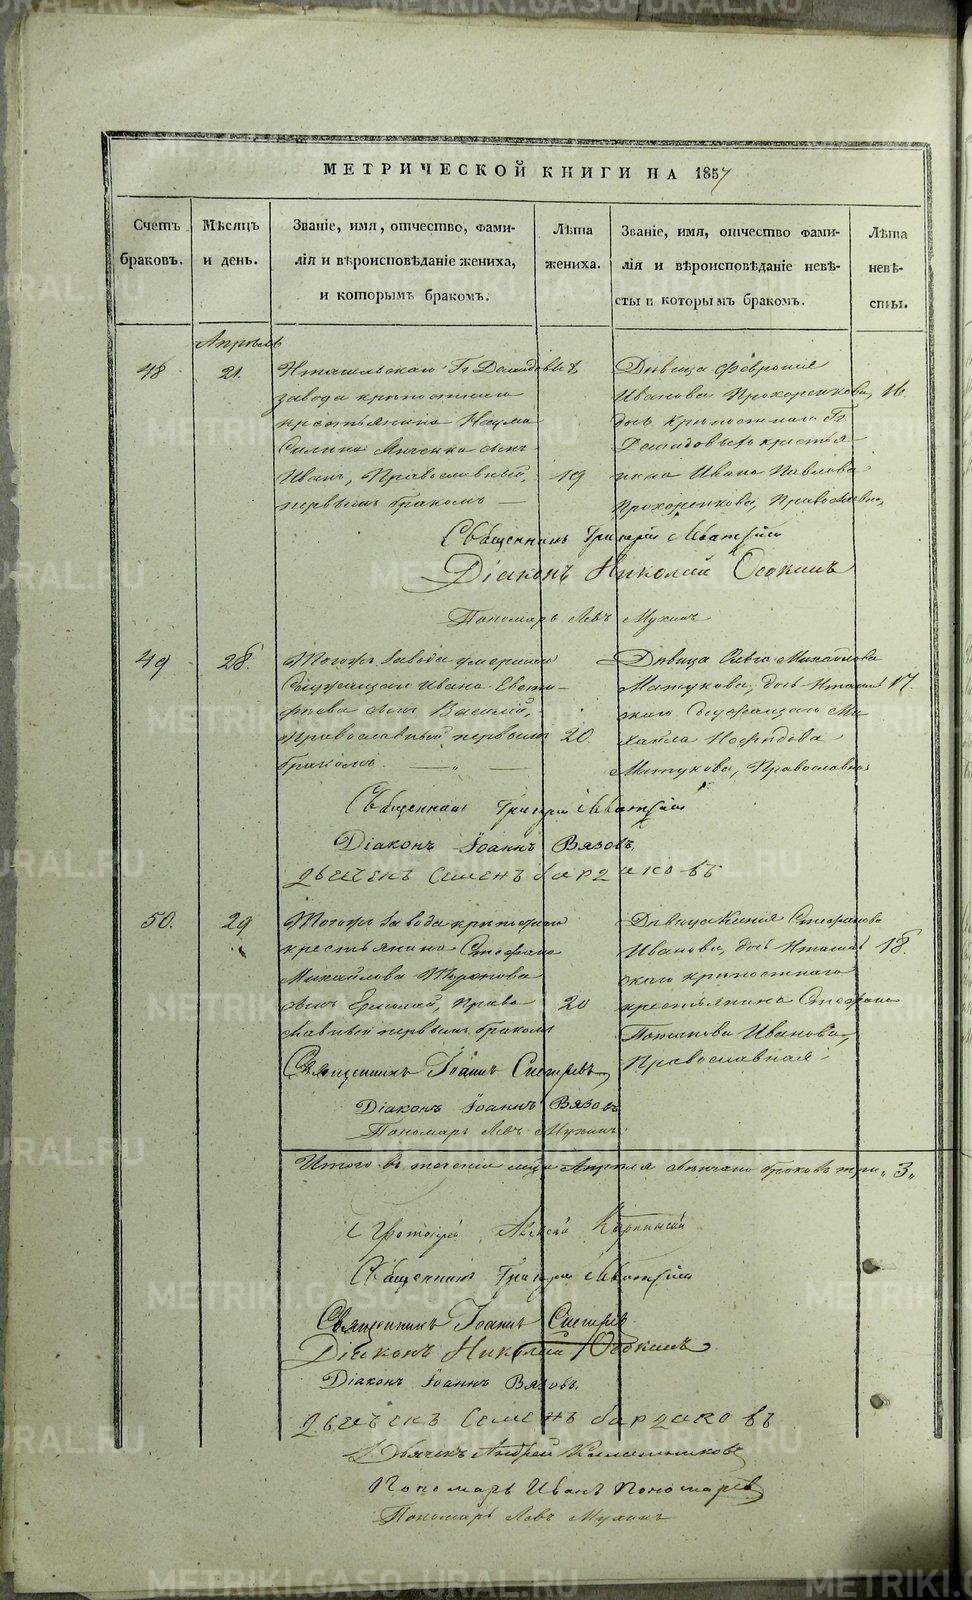 МЕТРИЧЕСКОЙ КНИГИ НА 1857
Счетъ браковъ.
Мѣсяцъ и день.
Званіе, имя, отчество, фами-
лія и вѣроисповѣданіе жениха,
и которымъ бракомъ.
Лѣта жениха.
Званіе, имя, отчество фами-
лія и вѣроисповѣданіе невѣ-
сты и которымъ бракомъ.
Лѣта невѣ-
сты.
Апрѣль
48
21.
завода крѣпостнаго
крестьянина Наума
сынъ
Иванъ, Православный,
первымъ бракомъ —
19
Дѣвица Феврония
Иванова Прохоренкова,
дочь крѣпостнаго Гг.
Демидовыхъ крестья
нина Ивана Павлова
Прохоренкова, Православна,
16
Священникъ Григорій
Діаконъ Николай
Пономарь Левъ Мухинъ
49
28.
Тогожъ завода умершаго
Служащаго Ивана Евсти-
фѣева сынъ Василій,
Православный первымъ
бракомъ. — „ —
20
Дѣвица Михайлова
Матукова, дочь
скаго Служащаго Ми
хаила
Матукова, Православна
17.
Священникъ Григорій
Діаконъ Іоаннъ Вязовъ
Дьечекъ Семенъ Бардаковъ
50.
29
Тогожъ завода крѣпостнаго
крестьянина Стефана
Михайлова
сынъ Ермолай, Право
славный первымъ бракомъ
20
Дѣвица Ксенія Стефанова
Иванова, дочь
скаго крѣпостнаго
крестьянина Стефана
Иванова,
Православная
18.
Священникъ Іоаннъ
Діаконъ Іоаннъ Вязовъ
Пономарь Левъ Мухинъ
Итого въ теченіи мца Апрѣля вѣнчано браковъ три „3„
Протоіерей Карпинскій
Священникъ Григорій
Священникъ Іоаннъ
Діаконъ Николай
Діаконъ Іоаннъ Вязовъ.
Дьечекъ Семенъ Бардаковъ
Дьячекъ Андрей Калашниковъ
Пономарь Иванъ Пономаревъ
Пономарь Левъ Мухинъ
METRIKI.GASO-URAL.RU